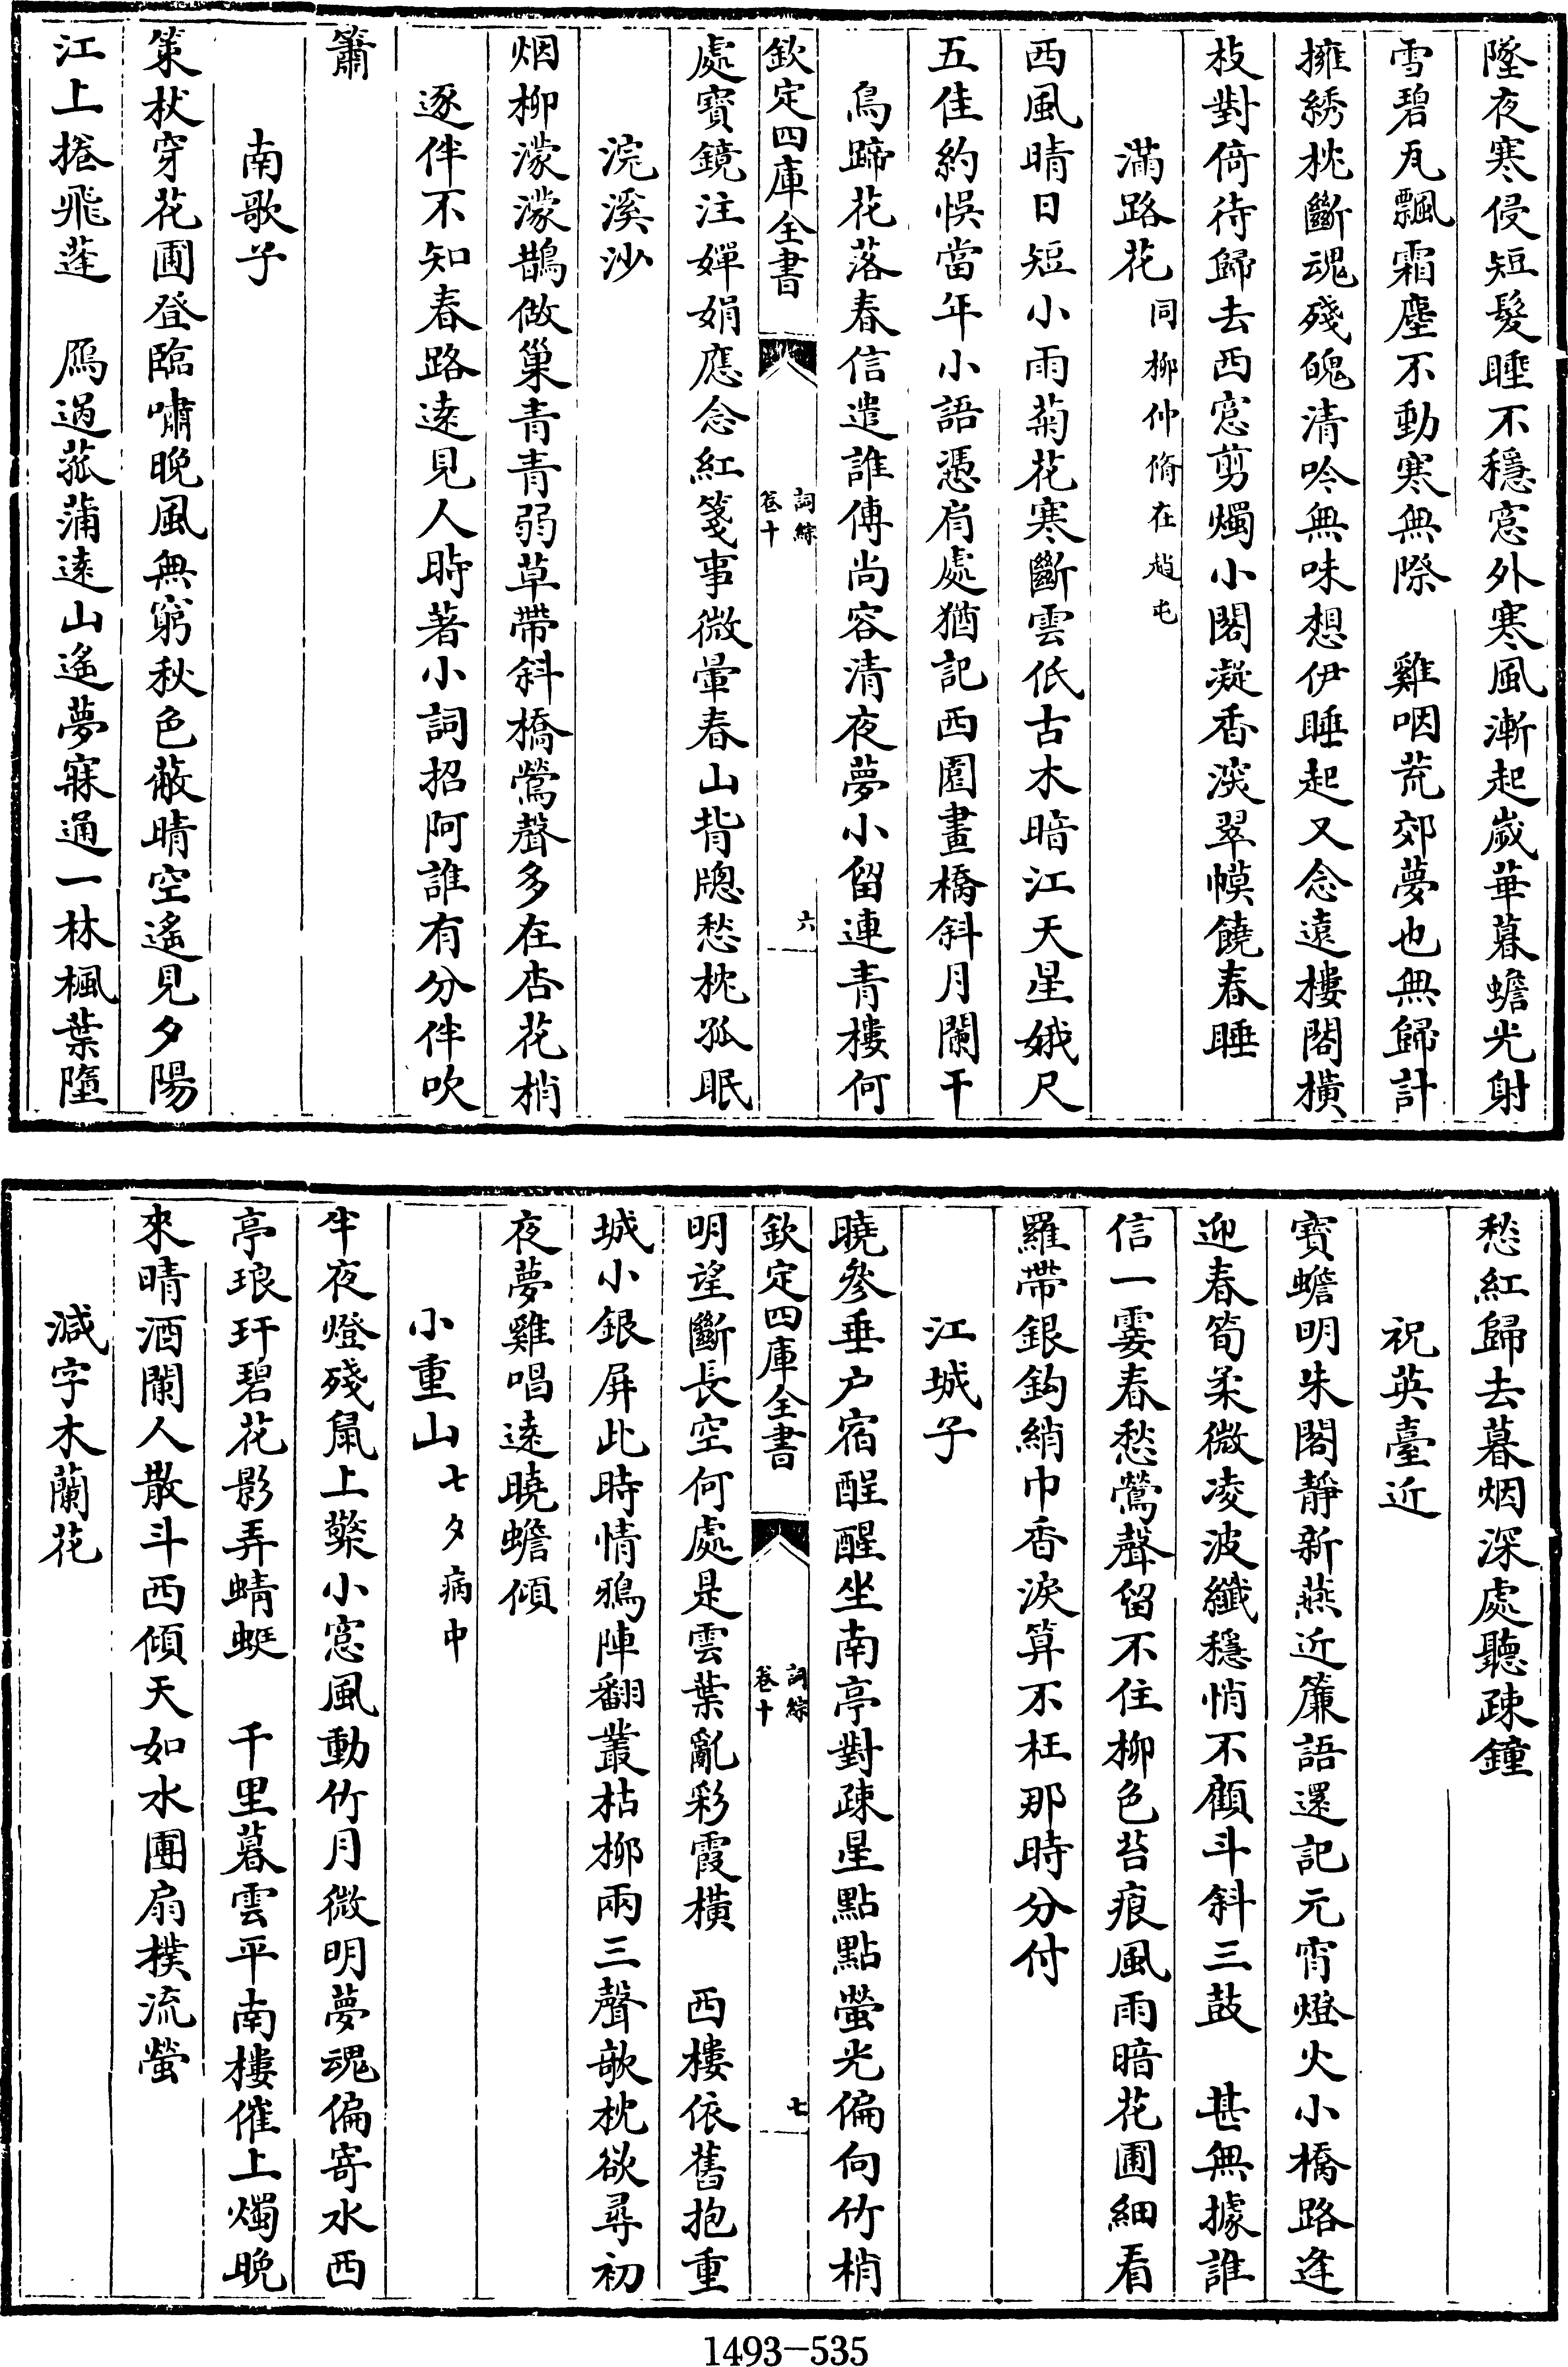 墜夜寒侵短髮睡不穩窓外寒風漸起歲華暮蟾光射
雪碧瓦飄霜塵不動寒無際　雞咽荒郊夢也無歸計
擁綉枕斷魂殘魄清吟無味想伊睡起又念遠樓閣橫
枝對倚待歸去西窓剪燭小閣凝香淡翠幙饒春睡
滿路花同柳仲脩在趙屯
西風晴日短小雨菊花寒斷雲低古木暗江天星娥尺
五佳約悞當年小語憑肩處猶記西園畫橋斜月闌干
鳥蹄花落春信遣誰傳尚容清夜夢小留連青樓何
欽定四庫全書
詞綜
卷十
六
處寳鏡注嬋娟應念紅箋事微暈春山背牕愁枕孤眠
浣溪沙
烟柳濛濛鵲做巢青青弱草帶斜橋鶯聲多在杏花梢
逐伴不知春路逺見人時著小詞招阿誰有分伴吹
簫
南歌子
策杖穿花圃登臨嘯晚風無窮秋色蔽晴空遙見夕陽
江上捲飛蓬　鴈過菰蒲逺山遙夢寐通一林楓葉墮
愁紅歸去暮烟深處聽疎鐘
祝英臺近
寳蟾明朱閣靜新燕近簾語還記元宵燈火小橋路逢
迎春筍柔微凌波纖穩悄不顧斗斜三鼓　甚無據誰
信一霎春愁鶯聲留不住柳色苔痕風雨暗花圃細看
羅帶銀鈎綃巾香淚算不枉那時分付
江城子
曉參垂户宿酲醒坐南亭對疎星點點螢光偏向竹梢
欽定四庫全書
詞綜
卷十
七
明望斷長空何處是雲葉亂彩霞橫　西樓依舊抱重
城小銀屏此時情鴉陣翻叢枯柳兩三聲欹枕欲尋初
夜夢雞唱逺曉蟾傾
小重山七夕病中
半夜燈殘鼠上檠小窓風動竹月微明夢魂偏寄水西
亭琅玕碧花影弄蜻蜓　千里暮雲平南樓催上燭晚
來晴酒闌人散斗西傾天如水團扇撲流螢
減字木蘭花
1493-535